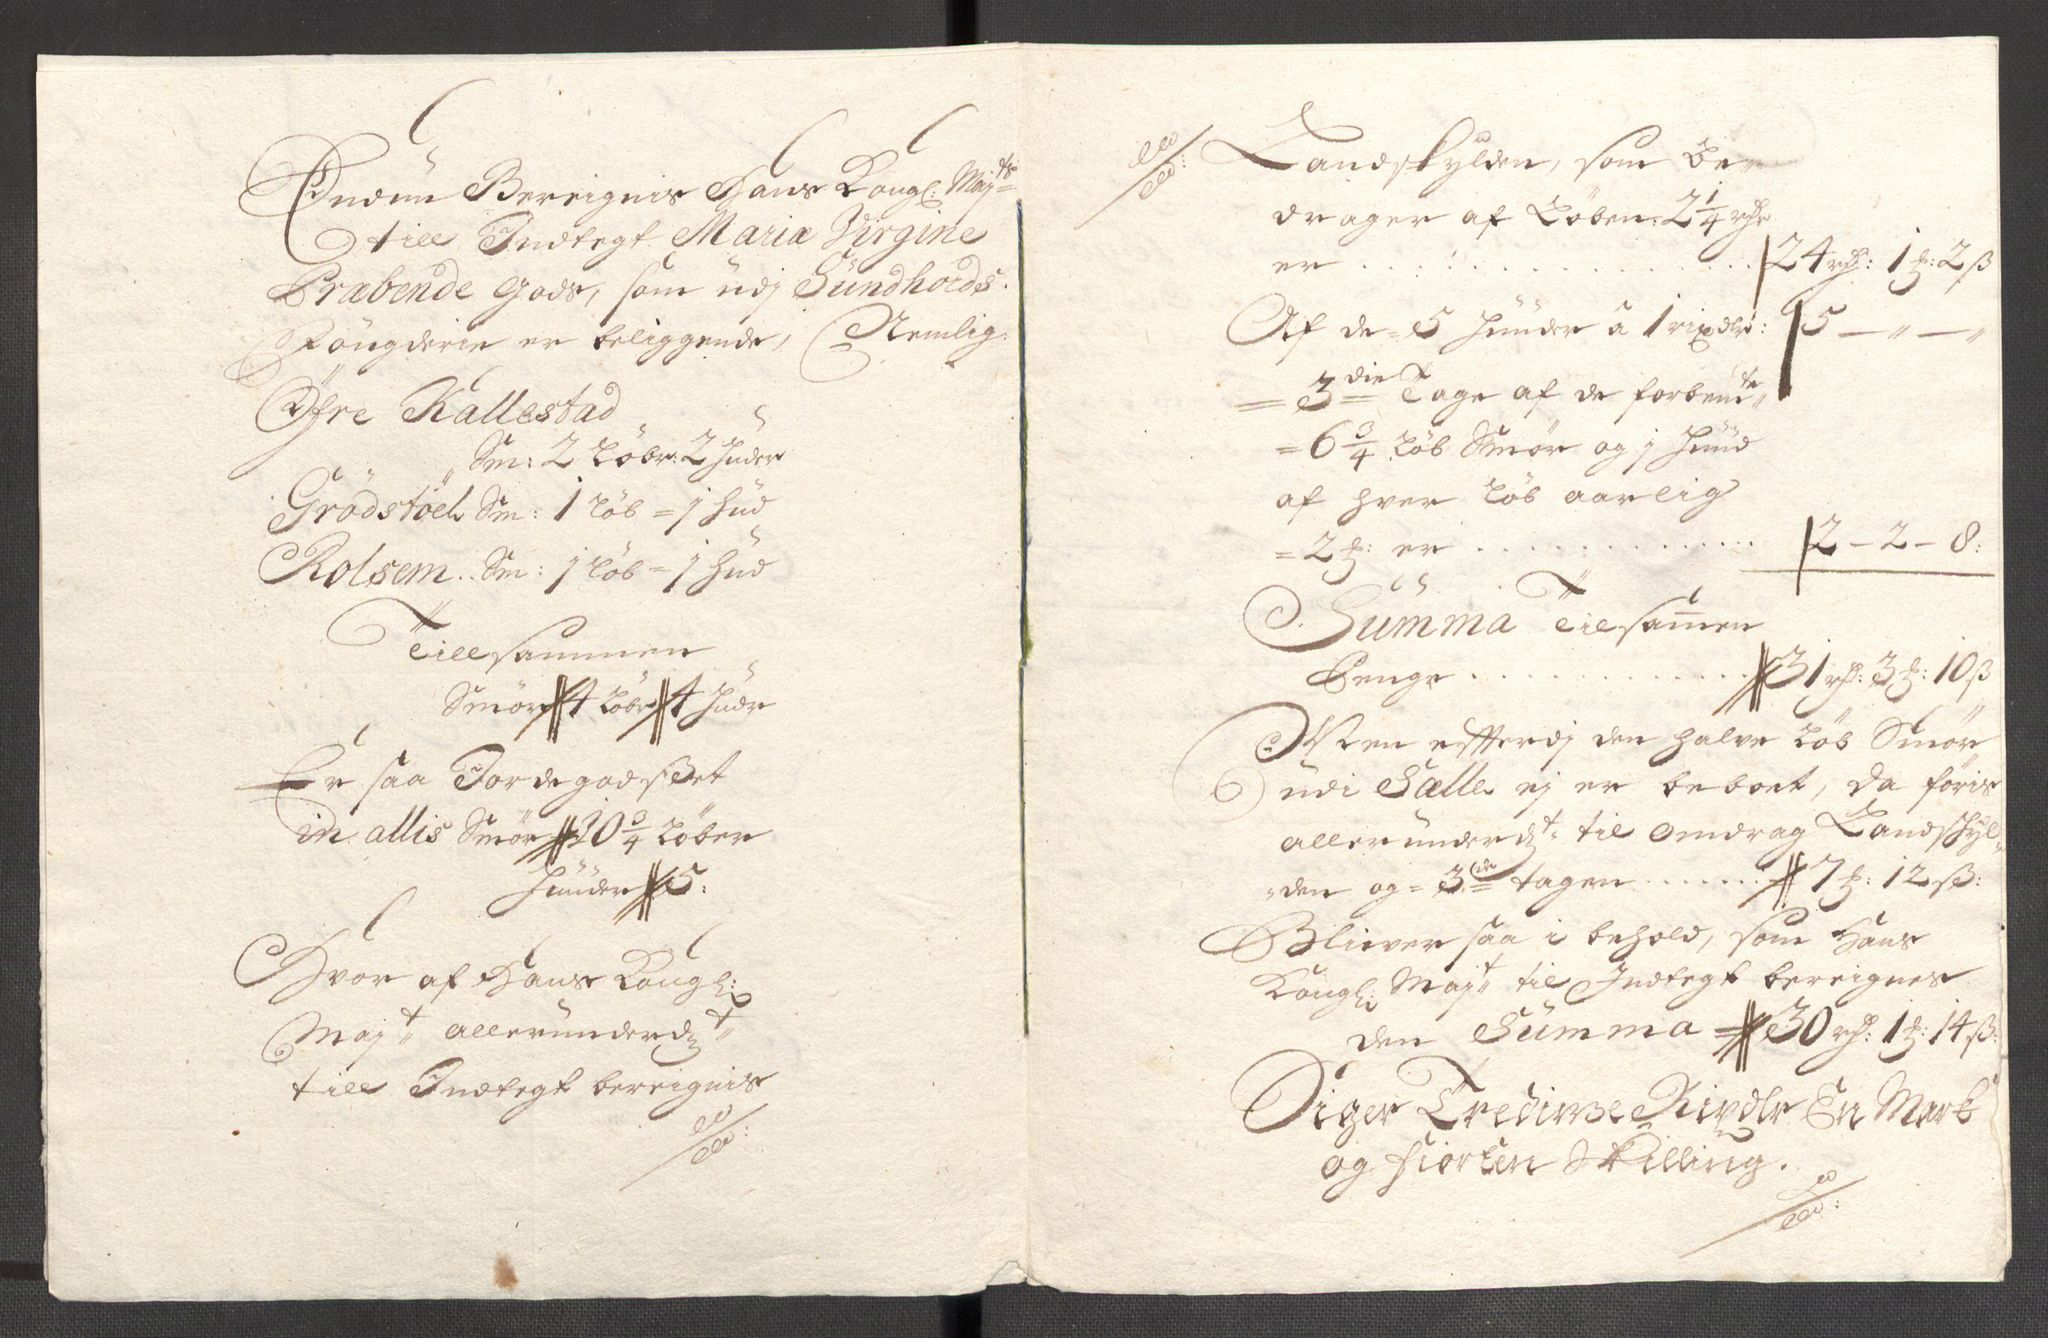 Endnu Bereignis Hans Kongl: Majts
till Indtegt Maria Virgine
Præbende Gods, som udj Sundhords
Fougderie er beliggende, Nemlig:
Øfre Kallestad
Sm: 2 Løbr: 2 huder
Grødstøel Sm: 1 Løb = 1 hud
Rolsem .. Sm: j Løb = j hud
Tillsammen
Smør 4 Løbr 4 hudr
Er saa Jordegodsset
in allis Smør 10 3/4 Løber
huder 5:
Hvor af Hans Kongl:
Majt allerunderdt
till Indtegt bereignis
Landskylden, som be-
drager af Løben: 2 1/4 rdr
er . . . . . . . . . . 24 rdr: 1 ₻: 2 ß
Af de = 5 huder â 1 rixdlr: 5 — " — "
= 3die Tage af de forbente
= 6 3/4 Løb Smør og j hud
af hver Løb aarlig
= 2 ₻: er . . . . . . . . . . 2 – 2 – 8:
Summa Tilsamen
Penge . . . . . . . . . . 31 rd: 3 ₻: 10 ß
Men efterdj den halve Løb Smør
udi Sælle ej er beboet, da føris
allerunderdt til Omdrag Landskyl-
den og = 3die tagen . . . . . . 7 ₻: 12 ß:
Bliever saa i behold, som Hans
Kongl: Majt til Indtegt bereignes
den Summa = 30 rd: 1 ₻: 14 ß:
Siger Tredivve Rixdlr En Mark
og fiorten Skilling.